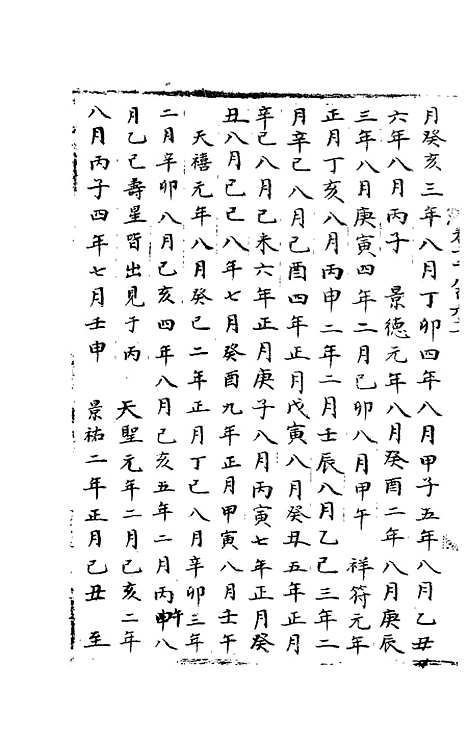 月癸亥三年八月丁卯四年八月甲子五年八月乙丑
六年八月丙子　景德元年八月癸酉二年八月庚辰
三年八月庚寅四年二月己卯八月甲午　祥符元年
正月丁亥八月丙申二年二月壬辰八月乙巳三年二
月辛巳八月己酉四年正月戊寅八月癸丑五年正月
辛己八月己未六年正月庚子八月丙寅七年正月癸
丑八月己己八年七月癸酉九年正月甲寅八月壬午
天禧元年八月癸己二年正月丁己八月辛卯三年
二月辛卯八月己亥四年八月己亥五年二月丙申午八
月乙己壽星皆出見于丙　天聖元年二月己亥二年
八月丙子四年七月壬申　景祐二年正月己丑　至